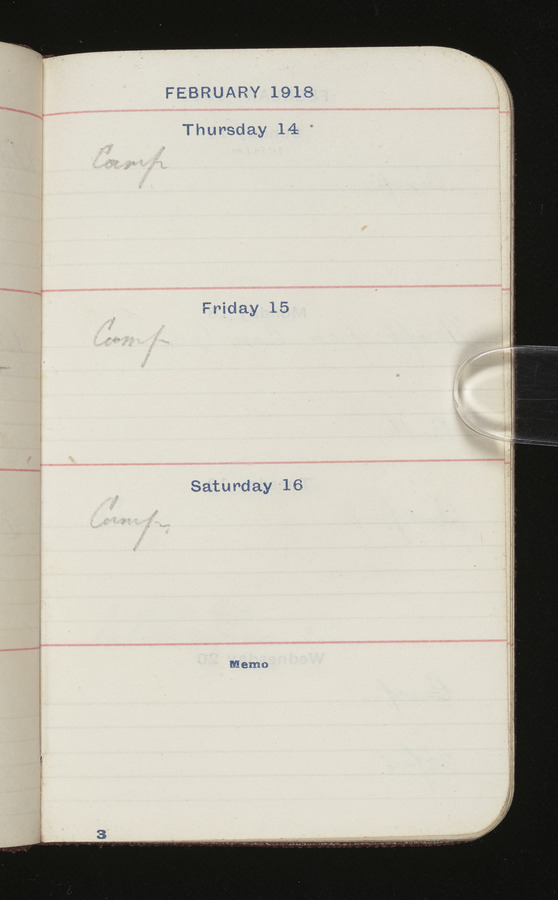 FEBRUARY 1918
Thursday 14
Camp
Friday 15
Camp
Saturday 16
Camp
Memo
3